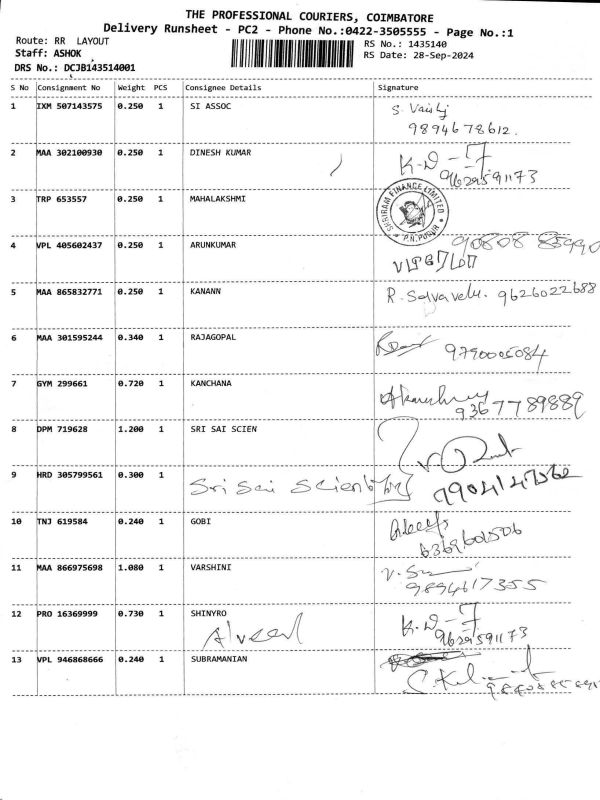 THE PROFESSIONAL COURIERS, COIMBATORE
Delivery Runsheet - PC2 - Phone No.:0422-3505555 - Page No.:1
Route: RR LAYOUT
RS No.: 1435140
Staff: ASHOK
RS Date: 28-Sep-2024
DRS No.: DCJB143514001
S No Consignment No Weight PCS Consignee Details Signature
1 IXM 507143575 0.250 1 SI ASSOC S. Vaishj
9894678612.
2 MAA 302100930 0.250 1 DINESH KUMAR K.D-J
9629591173
3 TRP 653557 0.250 1 MAHALAKSHMI SHRIRAM FINANCE LIMITED P.N.PUDUR
4 VPL 405602437 0.250 1 ARUNKUMAR 90808 85990
5 MAA 865832771 0.250 1 KANANN R. Selvavelu. 9626022688
6 MAA 301595244 0.340 1 RAJAGOPAL
9790005084
7 GYM 299661 0.720 1 KANCHANA
9367789889
8 DPM 719628 1.200 1 SRI SAI SCIEN
9 HRD 305799561 0.300 1 Sri Sai Scientific
10 TNJ 619584 0.240 1 GOBI
6369601506
11 MAA 866975698 1.080 1 VARSHINI
9894617355
12 PRO 16369999 0.730 1 SHINYRO K.D-J
9629591173
13 VPL 946868666 0.240 1 SUBRAMANIAN